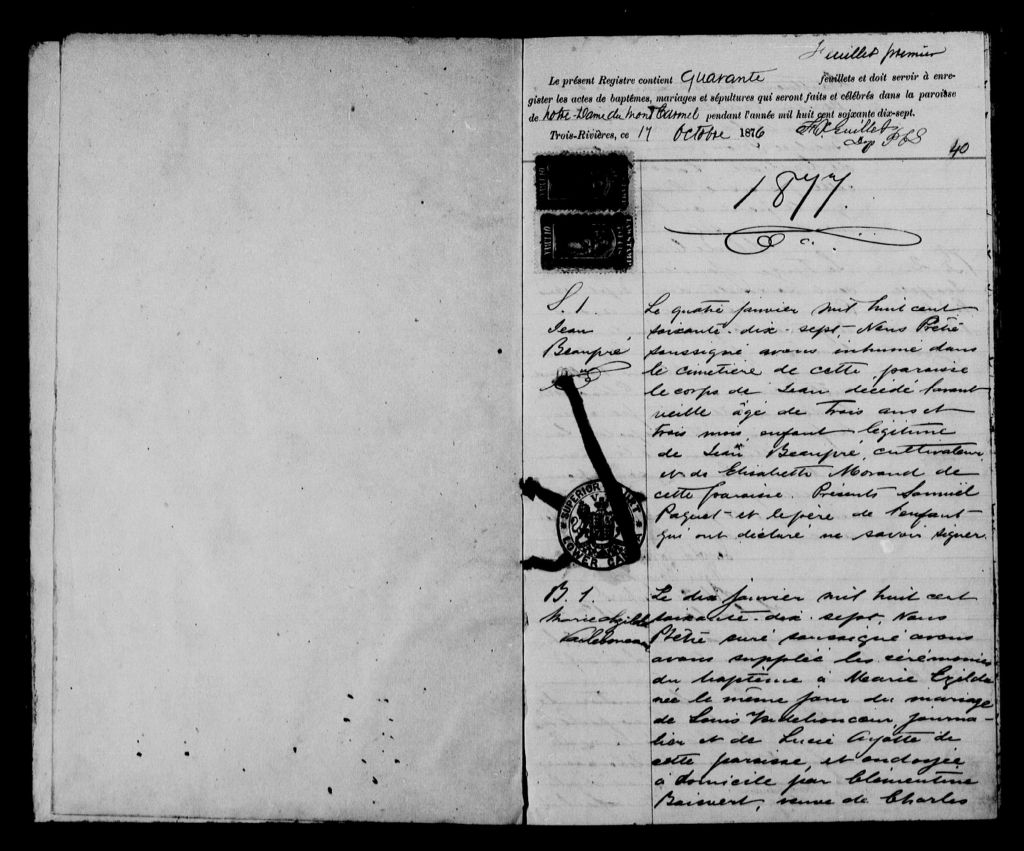 Feuillet premier
Le présent Registre contient Quarante feuillets et doit servir à enre-
gister les actes de baptêmes, mariages et sépultures qui seront faits et célébrés dans la paroisse
de Notre-Dame du Mont Carmel pendant l'année mil huit cent soixante dix-sept.
Trois-Rivières, ce 17 Octobre 1876
Dep P C S
40
1877.
S. 1.
Jean
Beaupré
Le quatre janvier mil huit cent
soixante-dix-sept, Nous Prêtre
soussigné avons inhumé dans
le cimetière de cette paroisse
le corps de Jean décédé l'avant
veille âgé de trois ans et
trois mois, enfant légitime
de Jean Beaupré, cultivateur,
et de Elisabeth Morand de
cette paroisse. Présents Samuël
Paquet et le père de l'enfant
qui ont déclaré ne savoir signer.
SUPERIOR COURT
LOWER CANADA
B. 1.
Marie Egilda
Vadeboncoeur
Le dix janvier mil huit cent
soixante-dix-sept, Nous
Prêtre curé soussigné avons
avons supplée les cérémonies
du baptême à Marie Egilda
née le même jour du mariage
de Louis Vadeboncoeur, journa-
lier et de Lucie Ayotte de
cette paroisse, et ondoyée
à domicile par Clémentine
Boisvert, veuve de Charles